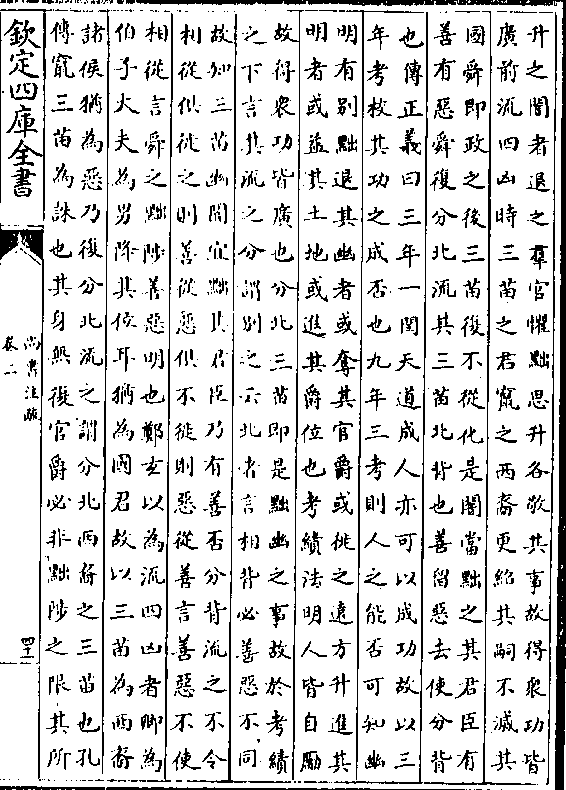 升之闇者退之羣官懼黜思升各敬其事故得衆功皆
廣前流四凶時三苗之君竄之西裔更紹其嗣不滅其
國舜即政之後三苗復不從化是闇當黜之其君臣有
善有惡舜復分北流其三苗北背也善留惡去使分背
也傳正義曰三年一閏天道成人亦可以成功故以三
年考校其功之成否也九年三考則人之能否可知幽
明有别黜退其幽者或奪其官爵或徙之遠方升進其
明者或益其土地或進其爵位也考績法明人皆自勵
故得衆功皆廣也分北三苗即是黜幽之事故於考績
之下言其流之分謂别之云北者言相背必善惡不同
故知三苗幽闇宜黜其君臣乃有善否分背流之不令
相從俱徙之則善從惡俱不徙則惡從善言善惡不使
相從言舜之黜陟善惡明也鄭玄以為流四凶者卿為
伯子大夫為男降其位耳猶為國君故以三苗為西裔
諸侯猶為惡乃復分北流之謂分北西裔之三苗也孔
傳竄三苗為誅也其身無復官爵必非黜陟之限其所
欽定四庫全書
尚書注疏
卷二
四十一